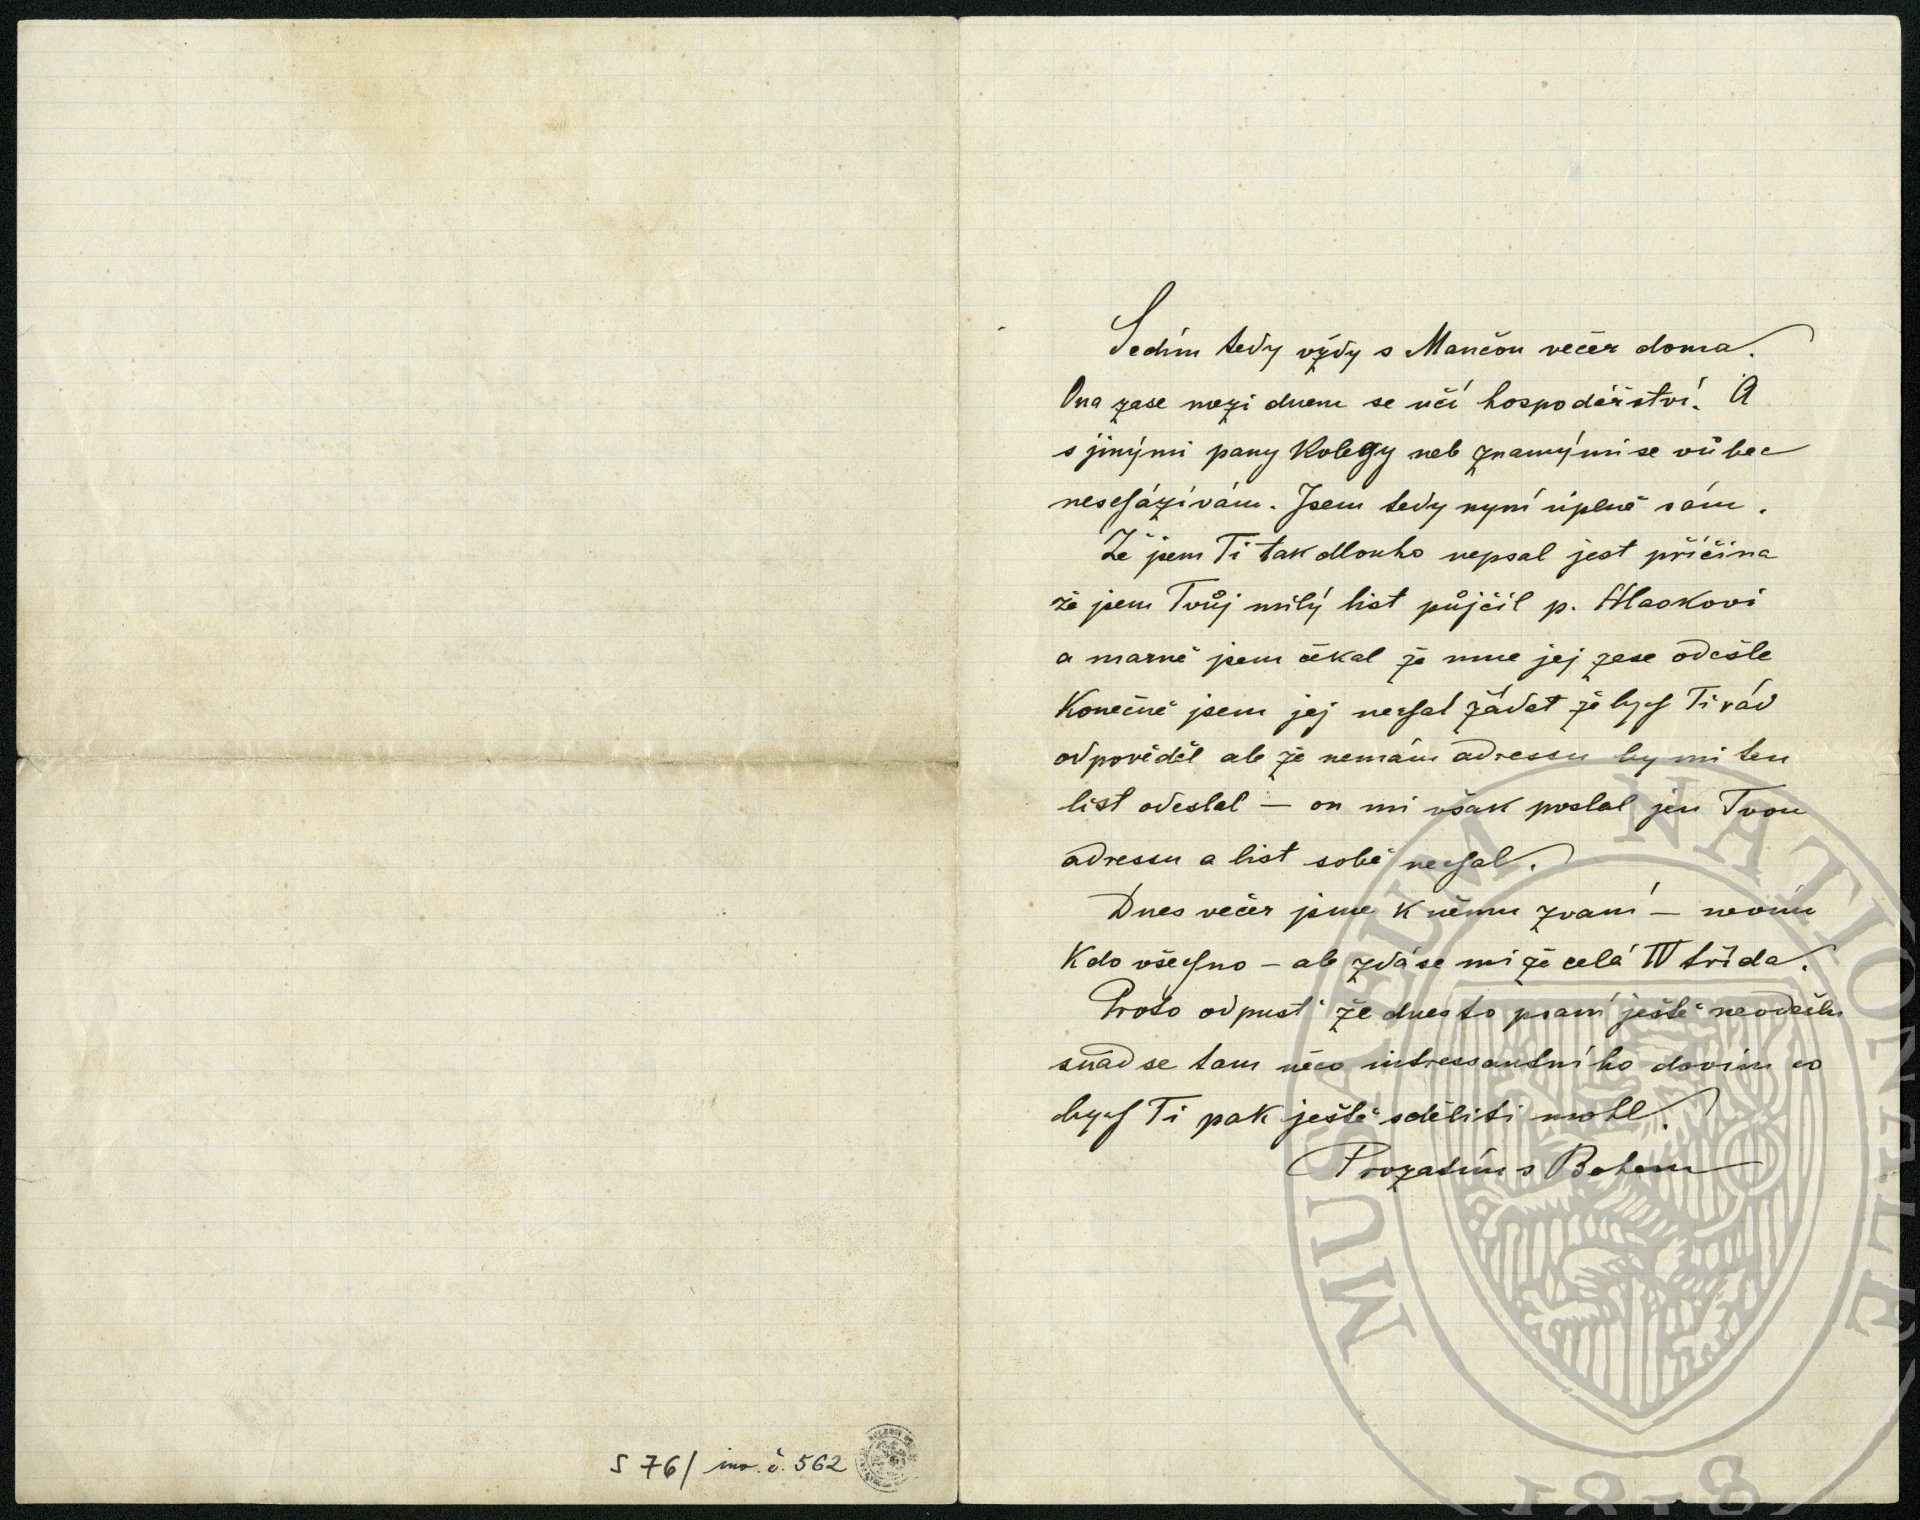 Sedím tedy vždy s Mančou večer doma.
Ona zase mezi dnem se učí hospodářství. A
s jinými pany Kolegy neb známými se vůbec
nescházívám. Jsem tedy nyní úplně sám.
Že jsem Ti tak dlouho nepsal jest příčina
že jsem Tvůj milý list půjčil p.
a marně jsem čekal že mne jej zase odešle
Konečně jsem jej nechal žádat že bych Ti rád
odpověděl ale že nemám adressu by mi ten
list odeslal — on mi však poslal jen Tvou
adressu a list sobě nechal.
Dnes večer jsme k němu zvaní — nevím
Kdo všechno — ale zdá se mi že celá IV třída.
Proto odpusť že dnes to psaní ještě neodešlu
snad se tam něco intressantního dovím co
bych Ti pak ještě sděliti mohl.
Prozatím s Bohem
S 76/ inv. č. 562
MUSEUM NATIONALE
1818